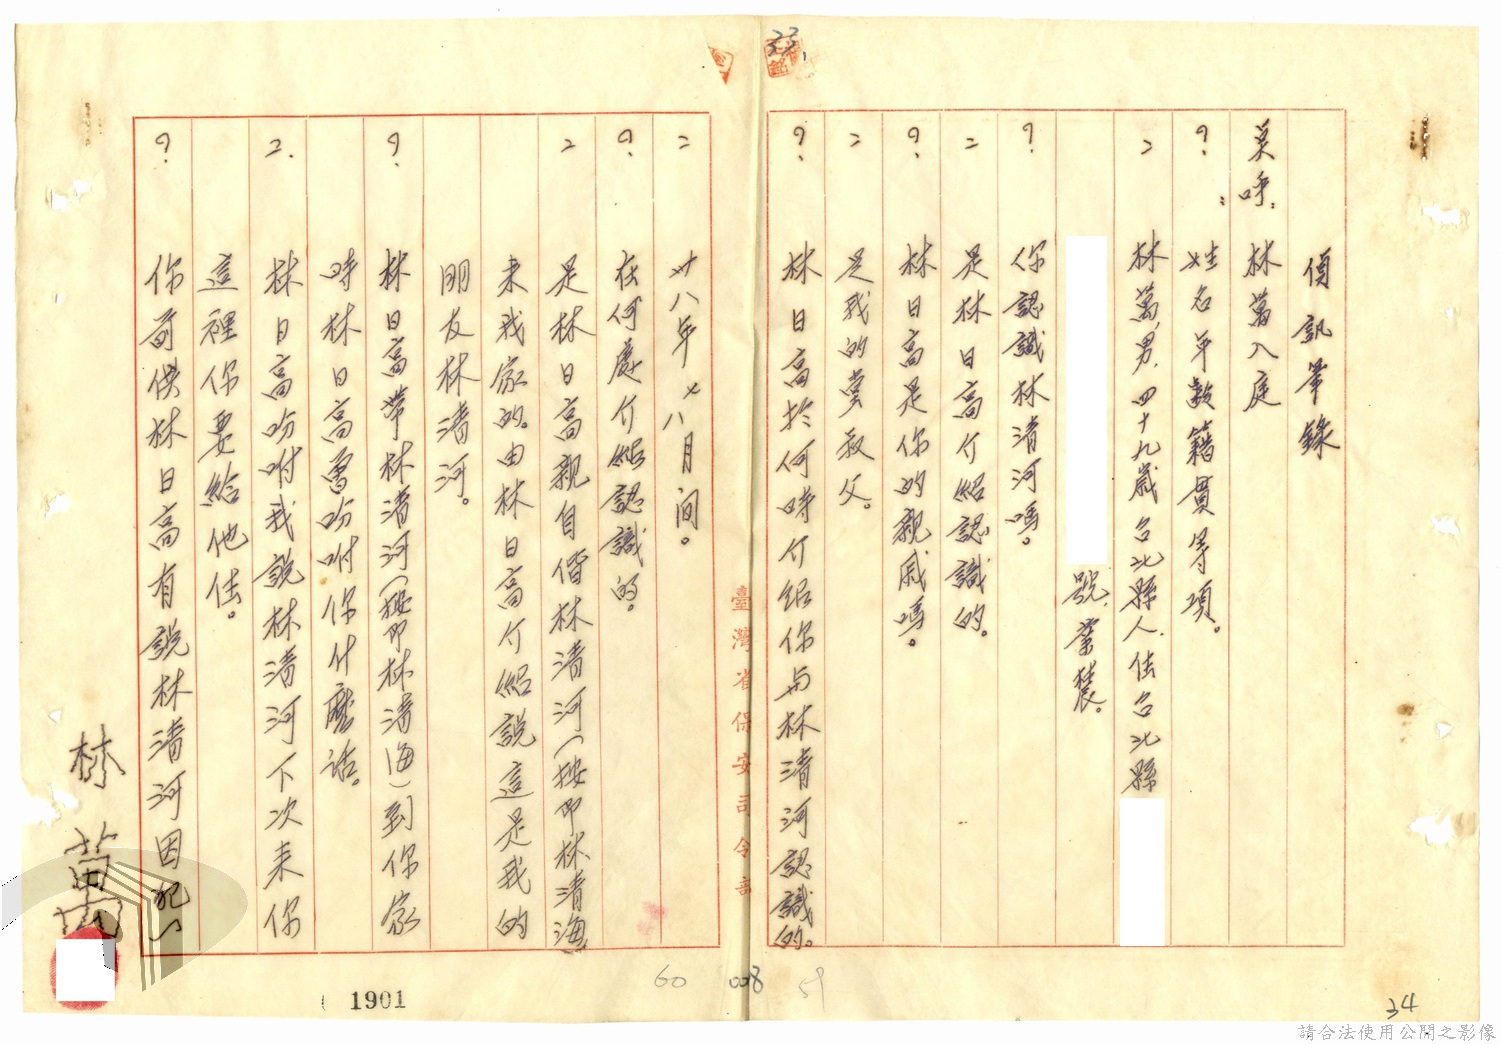 偵訊筆錄
点呼：林萬入庭
？：姓名年齡籍貫等項。
２ 林萬，男，四十九歲，台北縣人，住台北縣
號，業農。
？ 你認識林清河嗎。
２ 是林日高介紹認識的。
？ 林日高是你的親戚嗎。
２ 是我的堂叔父。
？ 林日高於何時介紹你与林清河認識的。
２ 卅八年七八月间。
？ 在何處介紹認識的。
２ 是林日高親自偕林清河（按即林清海
来我家的。由林日高介紹說這是我的
朋友林清河。
？ 林日高帶林清河（按即林清海）到你家
時林日高曾吩咐你什麼話。
２. 林日高吩咐我說林清河下次来你
這裡你要給他住。
？ 你前供林日高有說林清河因犯
林萬
臺灣省保安司令部
33
60 008 59
1901
34
請合法使用公開之影像